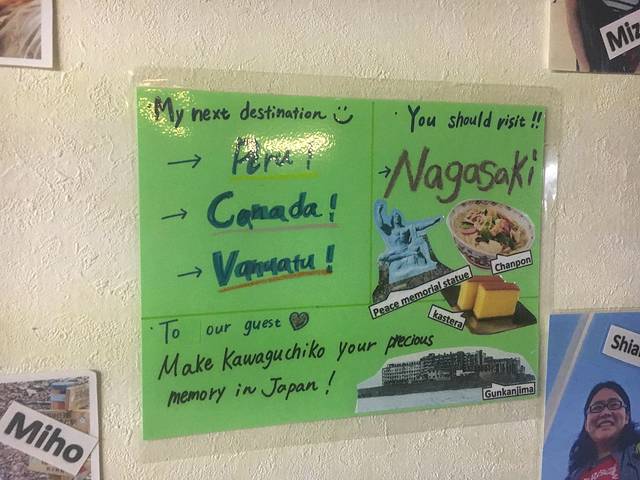 · My next destination
→ Peru!
→ Canada!
→ Vanuatu!
· You should visit!!
→ Nagasaki
Chanpon
Peace memorial statue
kastera
Gunkanjima
· To our guest
Make Kawaguchiko your precious
memory in Japan!
Miho
Miz
Shia